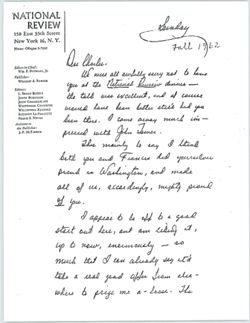 NATIONAL
REVIEW
150 East 35th Street
New York 16, N. Y.
Editor-in-Chief:
Wm. F. Buckley, Jr.
Publisher:
William A. Rusher
Editors:
L. Brent Bozell
James Burnham
John Chamberlain
Whittaker Chambers
Frank S. Meyer
Assistant to
the Publisher:
J. P. McFadden
Sunday
Fall 1962
Dear Charles:
We were all awfully sorry not to have
you at the National Review dinner —
the talks were excellent, and of course
would have been better still had you
been there. I came away much im-
pressed with John Tower.
This mainly to say I think
both you and Francis did yourselves
proud in Washington, and made
all of us, accordingly, mighty proud
of you.
I appear to be off to a good
start out here, and am liking it,
up to now, enormously — so
much that I can already say it'd
take a real good offer from else-
where to prize me a-loose. The